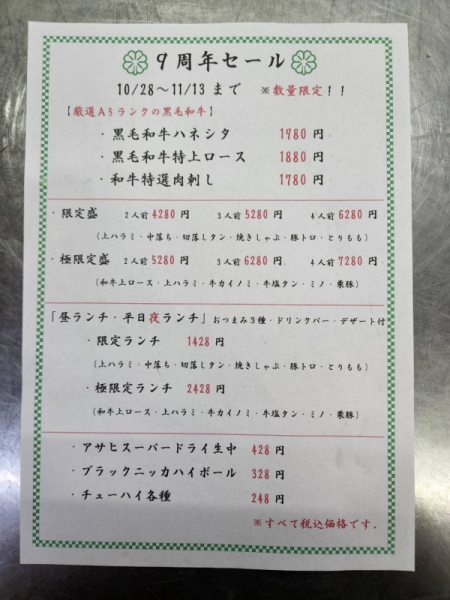 9周年セール
10/28～11/13 まで ※数量限定！！
【厳選A5ランクの黒毛和牛】
・黒毛和牛ハネシタ 1980 円
・黒毛和牛特上ロース 1880 円
・和牛特選肉刺し 1780 円
・限定盛 2人前 4280 円 3人前 5280 円 4人前 6280 円
（上ハラミ・中落ち・切落しタン・焼きしゃぶ・豚トロ・とりもも）
・極限定盛 2人前 5280 円 3人前 6280 円 4人前 7280 円
（和牛上ロース・上ハラミ・牛カイノミ・牛塩タン・ミノ・栗豚）
「昼ランチ・平日夜ランチ」おつまみ3種・ドリンクバー・デザート付
・限定ランチ 1428 円
（上ハラミ・中落ち・切落しタン・焼きしゃぶ・豚トロ・とりもも）
・極限定ランチ 2428 円
（和牛上ロース・上ハラミ・牛カイノミ・牛塩タン・ミノ・栗豚）
・アサヒスーパードライ生中 428 円
・ブラックニッカハイボール 328 円
・チューハイ各種 248 円
※すべて税込価格です。